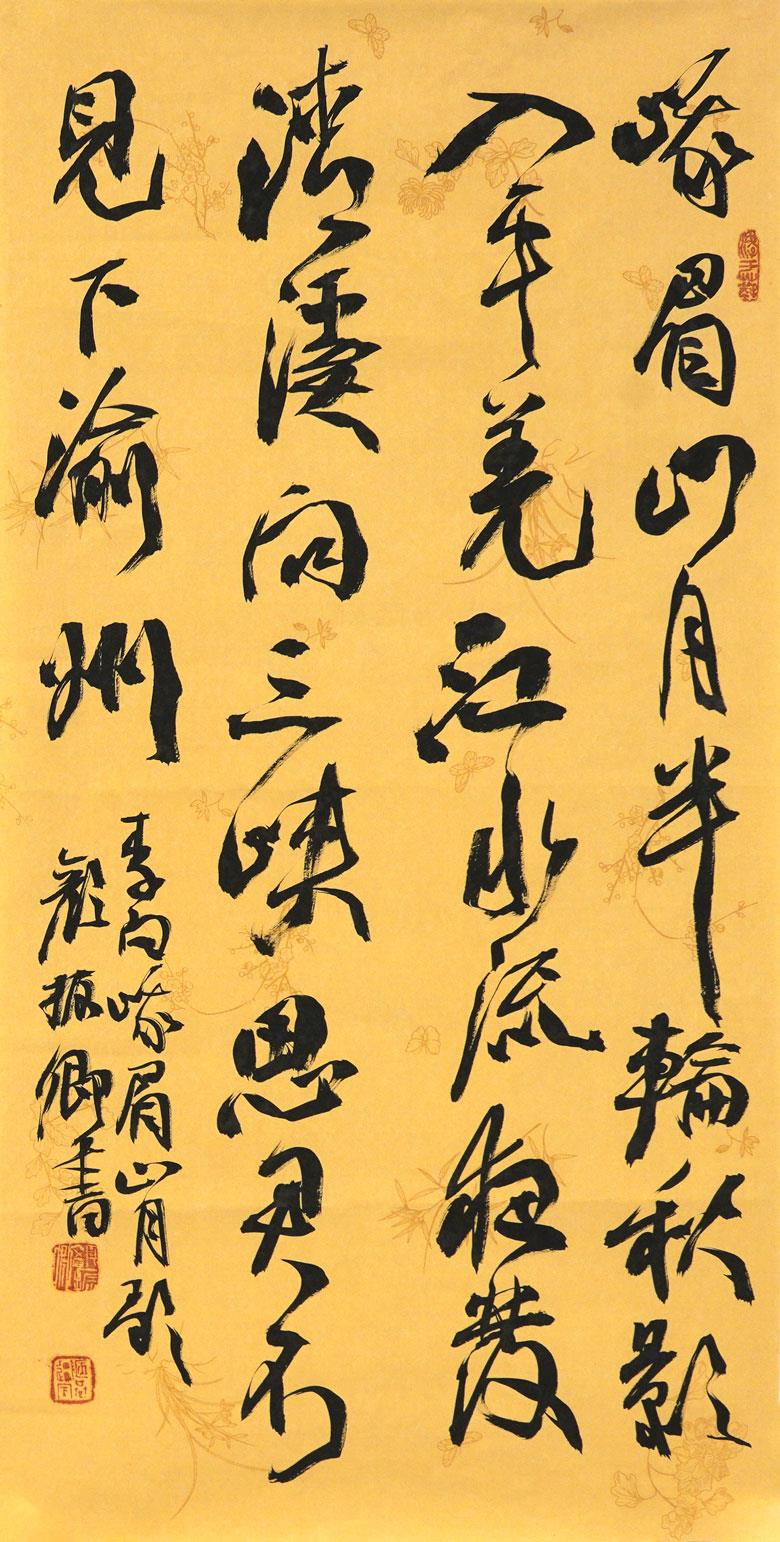 峨眉山月半輪秋影
入平羌江水流夜發
清溪向三峽思君不
見下渝州
李白峨眉山月歌
顏振卿書